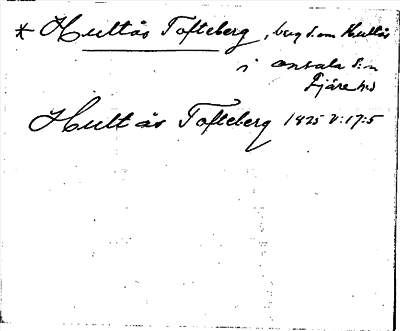 * Hultås Tofteberg, berg s.om Hultås
i Onsala s:n
Fjäre hd
Hultås Tofteberg 1825 V:17:5